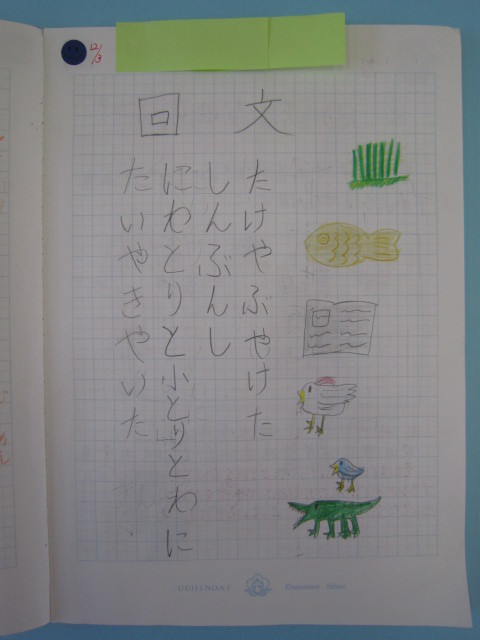 12/3
回文
たけやぶやけた
しんぶんし
にわとりと小とりとわに
たいやきやいた